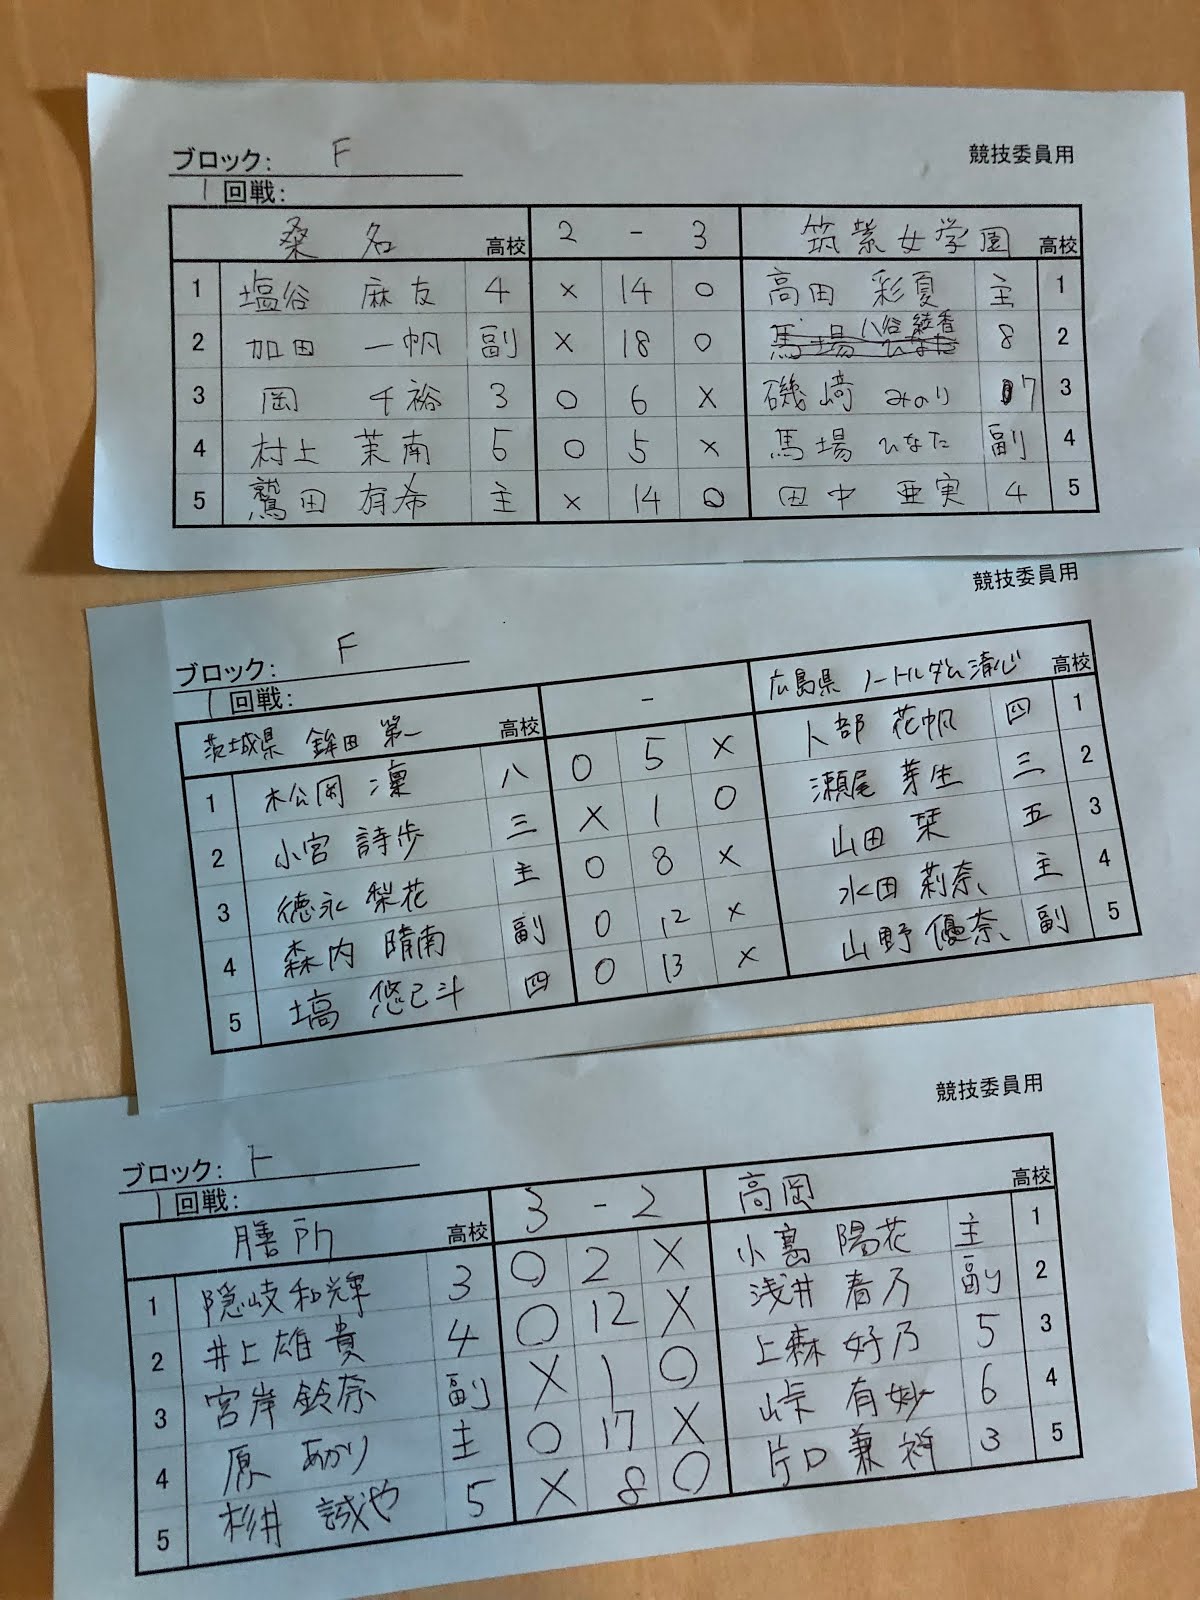 ブロック: F 競技委員用
1 回戦:
桑名 高校 2 - 3 筑紫女学園 高校
1 塩谷 麻友 4 × 14 ○ 高田 彩夏 主 1
2 加田 一帆 副 × 18 ○ 八谷 綾香 8 2
3 岡 千裕 3 ○ 6 × 磯﨑 みのり 7 3
4 村上 茉南 5 ○ 5 × 馬場 ひなた 副 4
5 鷲田 有希 主 × 14 ○ 田中 亜実 4 5
競技委員用
ブロック: F
1 回戦:
茨城県 鉾田第一 高校 - 広島県 ノートルダム清心 高校
1 松岡 凜 八 ○ 5 × 卜部 花帆 四 1
2 小宮 詩歩 三 × 1 ○ 瀬尾 芽生 三 2
3 徳永 梨花 主 ○ 8 × 山田 栞 五 3
4 森内 晴南 副 ○ 12 × 水田 莉奈 主 4
5 塙 悠己斗 四 ○ 13 × 山野 優奈 副 5
競技委員用
ブロック: F
1 回戦:
膳所 高校 3 - 2 高岡 高校
1 隠岐和輝 3 ○ 2 × 小島 陽花 主 1
2 井上雄貴 4 ○ 12 × 浅井 春乃 副 2
3 宮岸鈴奈 副 × 1 ○ 上森 好乃 5 3
4 原 あかり 主 ○ 17 × 峠 有妙 6 4
5 杉井 誠也 5 × 8 ○ 片口 兼 3 5